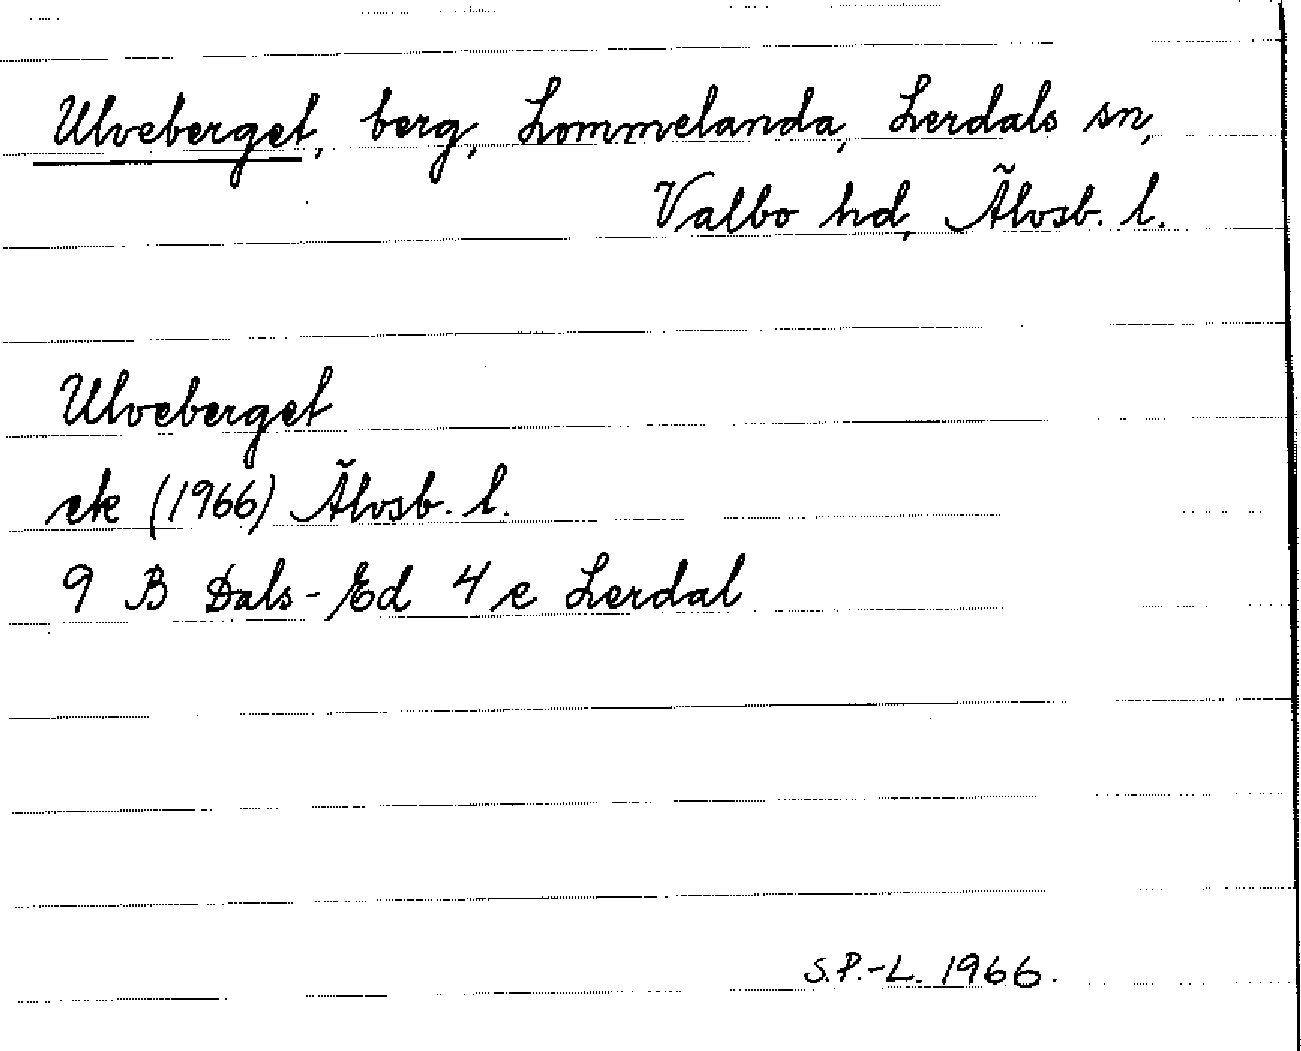 Ulveberget, berg, Lommelanda, Lerdals sn,
Valbo hd, Älvsb. l.
Ulveberget
ek (1966) Älvsb. l.
9 B Dals-Ed 4 e Lerdal
S.P.-L. 1966.